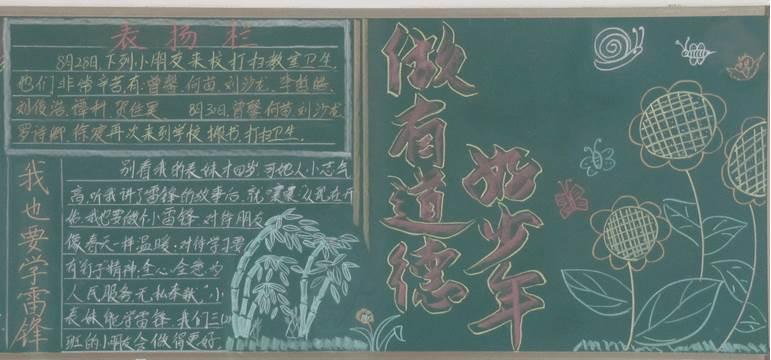 表扬栏
8月28日,下列小朋友来校打扫教室卫生.
他们非常辛苦有:曾馨、何苗、刘沙龙、李
刘俊浩、谭利、贺 8月30日,曾馨、何苗、刘沙龙、
罗诗卿、徐 再次来到学校搬书、打扫卫生.
我也要学雷锋
别看我的表妹才四岁,可她人小志气
高,听我讲了雷锋的故事后,就 "从现在开
始,我也要做个小雷锋.对待朋友
像春天一样温暖,对待学习要
有钉子精神,全心全意为
人民服务,无私奉献"小
表妹能学雷锋,我们三
班的小朋友会做得更好.
做有道德
好少年